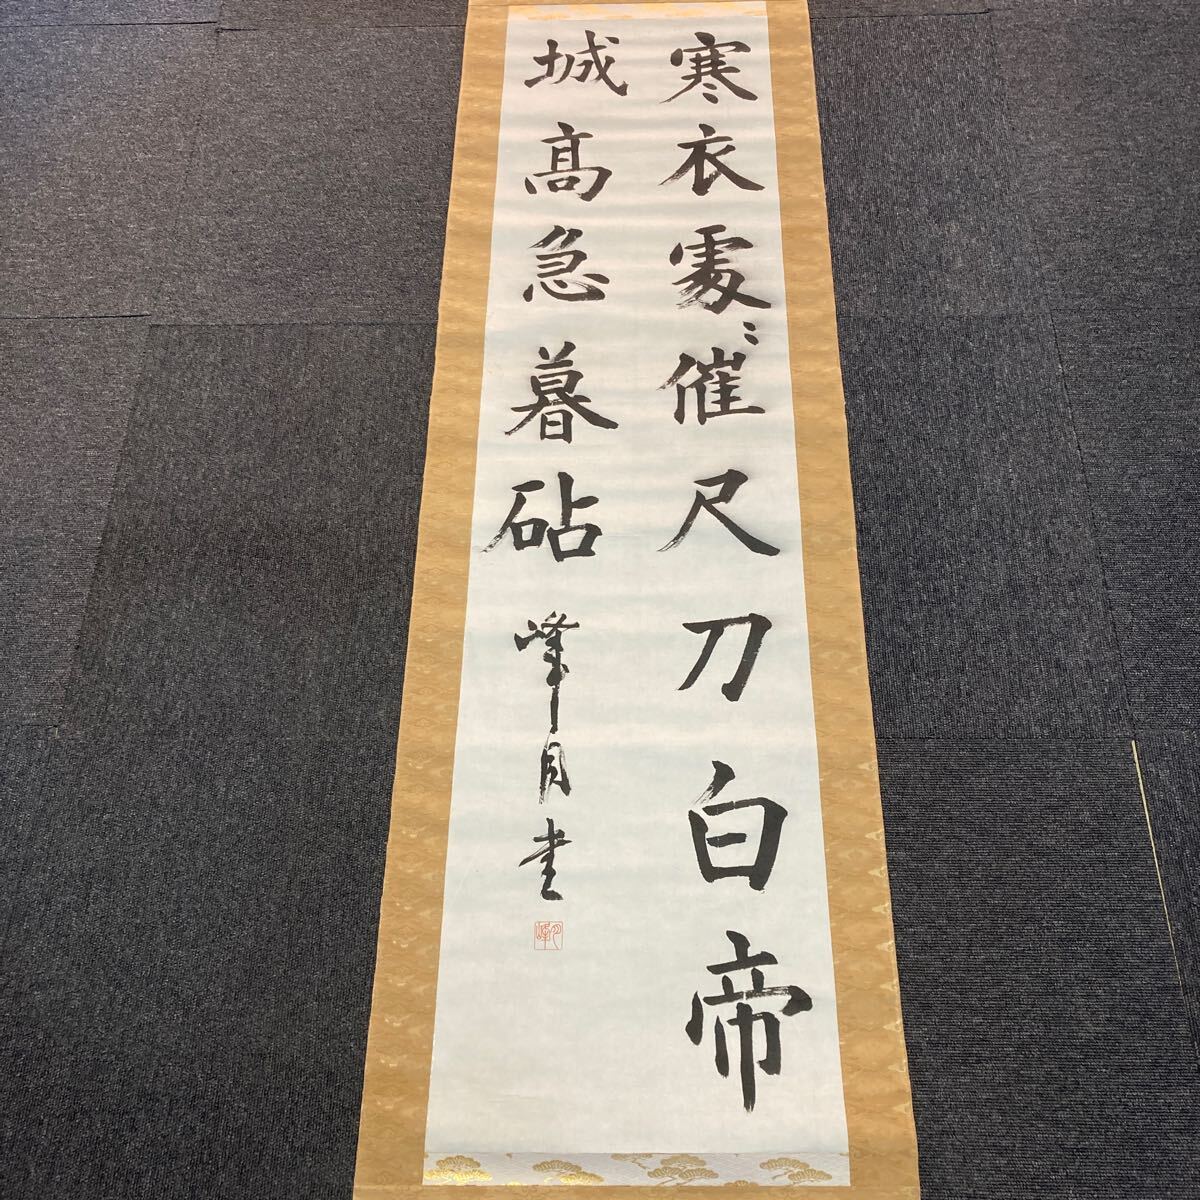 寒衣處〻催尺刀白帝
城高急暮砧
峰月書